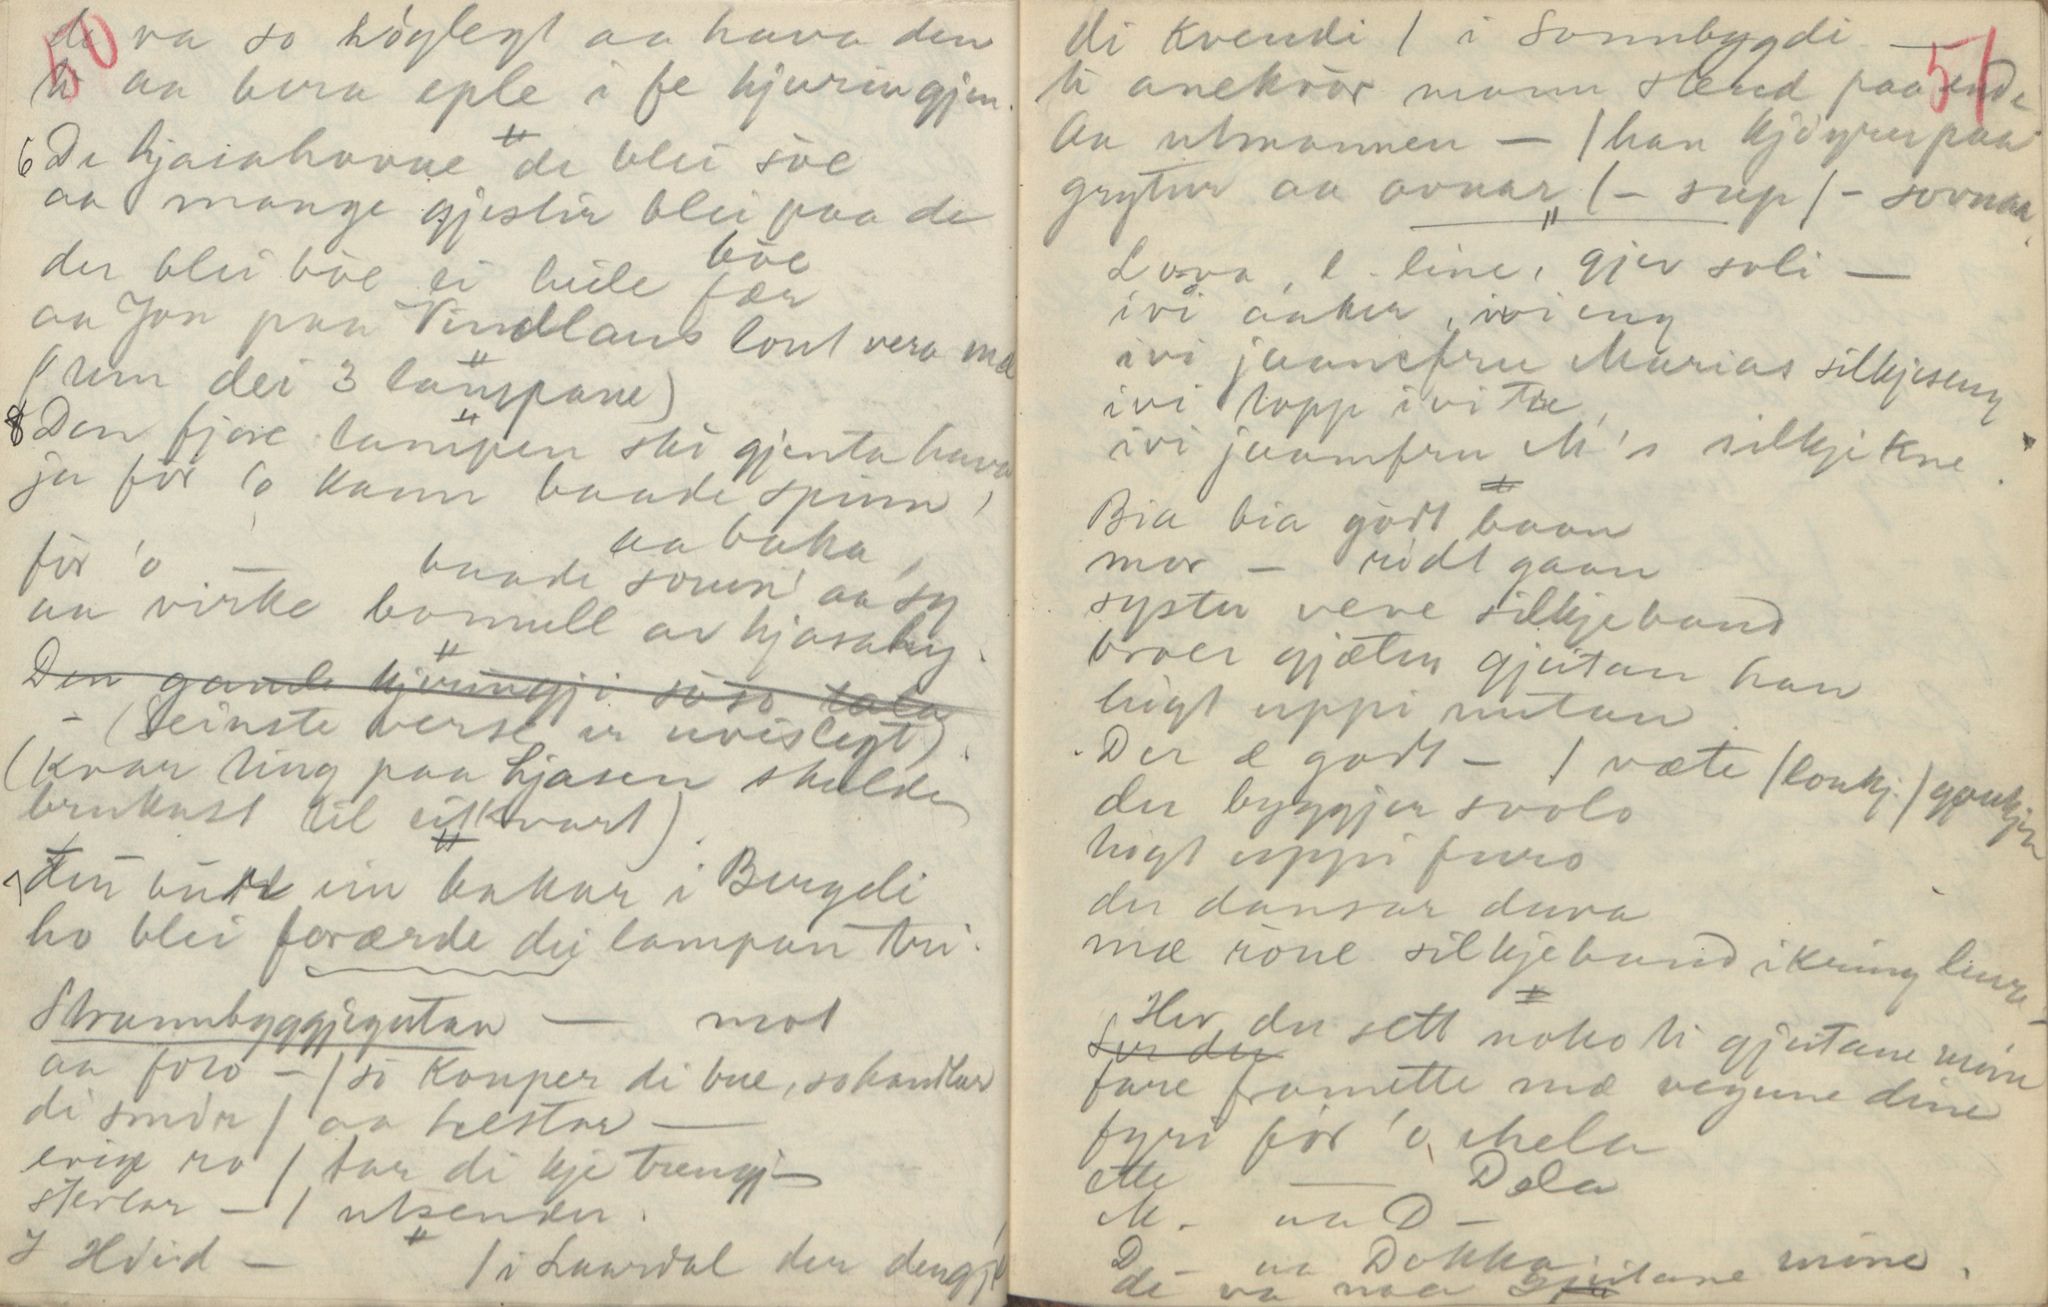 50
de va so höglegt aa hava den
ti aa bera eple i fe kjuringjen.
6 De hjasahovue de blei söe
aa mange gjestir blei paa de
der blei böe ei heile böe fær
aa Jon paa Vindlaus lout vera mæ
(um dei 3 lampane)
8 Den fjore lampen ski gjenta hava
ja för 'o kann baade spinn,
aa baka,
för 'o — baade soum' aa sy
aa virke bomull av hjasahy.
Den gamle kjeringji so so tala
- (Seinste verse er uvislegt).
(Kvar ting paa hjasen skulde
brukast til eitkvart).
7 ein bakar i Bergeli
ho blei forærde dei lampan tri.
Strannbyggjegutan — mot
aa foro — / so Kouper di bue, so handlar
di smör / aa hestar —
evige ro / tar di kje trengj —
sterlar — / utsender.
I Höid — / i Laardal der dengj
51
di Kvendi / i Sonnbygdi —
ti anekvör mann stend paa ende
Aa utmannen — / han kjöyrer paa
grytur aa ovnar / — sup / — sovnaa.
Lova, l. line, gjev soli —
ivi aaker, ivi eng
ivi jaamfru Marias silkjeseng
ivi topp ivi tre,
ivi jaamfru M's silkjekne.
Bia bia godt baan
mor — södt gaan
syster veve silkjeband
broer gjæter gjeitan han
högt uppi nutan
Der æ godt — / væte / loukj. / goukjen
der byggjer svolo
högt uppi furo
der dansar duva
mæ röue silkjeband ikring luva —
Hev du sett noko ti gjeitane mine
Ser du
fare framette mæ vegune dine
fyri för 'o, Mela
ette — Dela
M. aa D —
D — aa Dokka
de va naa gjeitane mine.